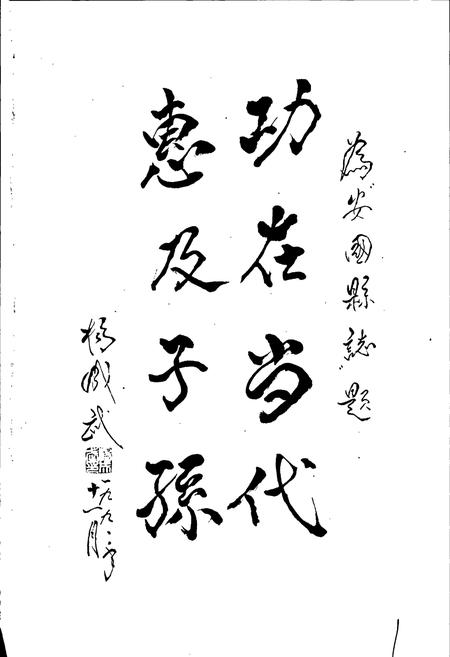 为安國縣誌題
功在当代
惠及子孫
楊成武
一九九二年
十一月